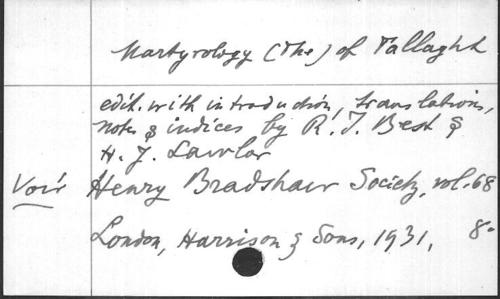 Martyrology (The) of Tallaght
edit. with introduction, translations,
notes & indices by R. J. Best &
H. J. Lawlor
Voir Henry Bradshaw Society, vol. 68
London, Harrison & Sons, 1931, 8°